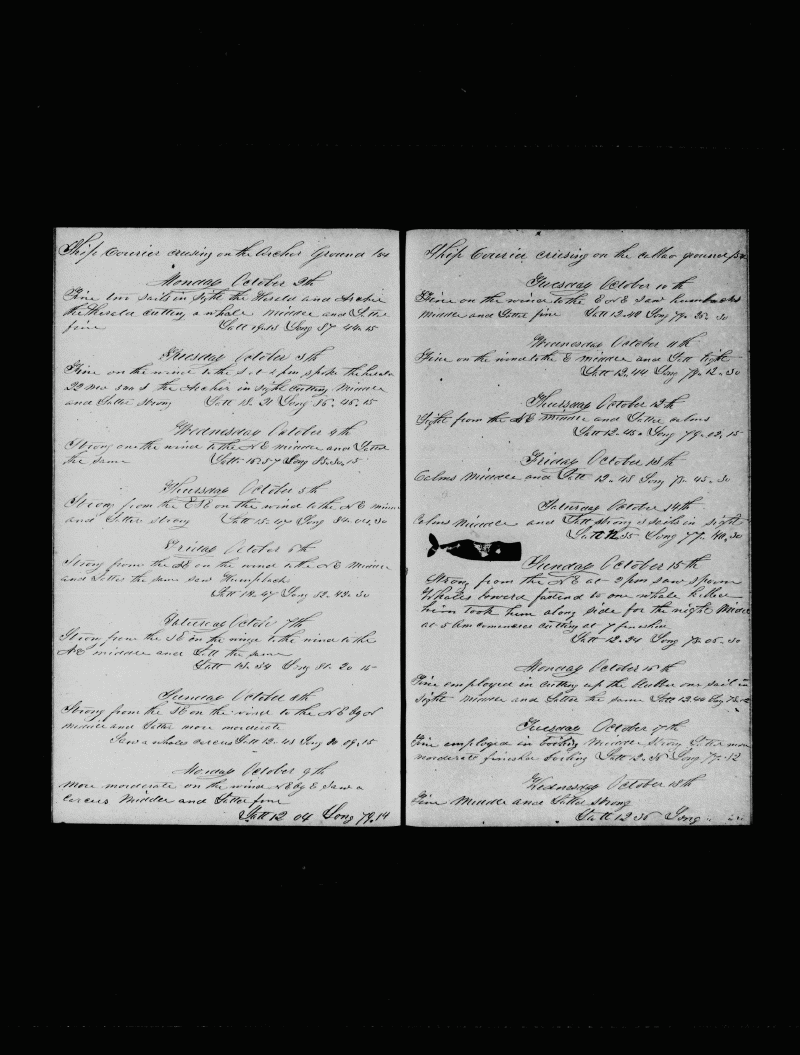 Ship Courier cruising on the Archer Ground
Monday October 2th
Fine two sails in sight the Herald and Archer
the Herald cutting a whale middle and Latter
fine Latt Long 87-44-15
Tuesday October 3th
Fine on the wind to the S at 2 pm spoke the Herald
22 mo the Archer in sight cutting Middle
and Latter Strong Latt 18-21 Long 86-45-15
Wednesday October 4th
Strong on the wind to the NE middle and Latter
the same Latt 16-57 Long
Thursday October 5th
Strong from the ESE on the wind to the NE middle
and Latter Strong Latt 15-47 Long
Friday October 6th
Strong from the SE on the wind to the NE Middle
and Latter the same saw Humpback
Latt Long 82-42-30
Saturday October 7th
Strong from the SE on the wind to the
NE middle and Latt the same
Latt Long 81-20-15
Sunday October 8th
Strong from the SE on the wind to the NE by N
middle and Latter more moderate
Saw a whales carcus Latt 12-43 Long 80-09-15
Monday October 9th
more moderate on the wind NE by E Saw a
Carcus Middle and Latter fine
Latt 12 04 Long 79-14
Ship Courier cruising on the callao ground
Tuesday October 10th
Fine on the wind to the E N E saw humbacks
middle and Latter fine Latt 12-40 Long 78-35-30
Wednesday October 11th
Fine on the wind to the E middle and Latt light
Latt 12-44 Long 78-12-30
Thursday October 12th
Light from the NE middle and Latter calms
Latt 12-45 Long 79-02-15
Friday October 13th
Calms Middle and Latt 12-45 Long 78-45-30
Saturday October 14th
Calms Middle and Latt strong sails in sight
Latt Long 77-40-30
Sunday October 15th
Strong from the NE at 2 pm saw Sperm
Whales lowerd fastend to one whale killed
him took him along side for the night Middle
at 5 Am comenced cutting at 7 finishd
Latt 12-24 Long 78-05-30
Monday October 16th
Fine employed in cutting up the blubber one sail in
sight middle and Latter the same Latt 12-40 Long 78-12
Tuesday October 17th
Fine employed in boiling Middle Strong Latter more
moderate finished boiling Latt 12-35 Long
Wednesday October 18th
Fine Middle and Latter strong
Latt 12 36 Long